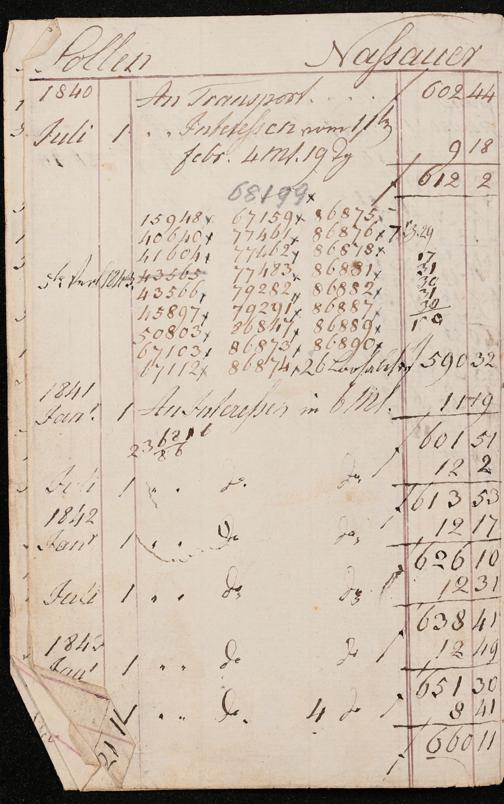 Sollen Nassauer
1840 An Transport . . . . 602 44
Juli 1 " " Interessen vom 11
febr. 4 Mt. 19 Tg 9 18
612 2
68199
15948 67159 86875
40640 77461 86876 7 53.29
41604 77462 86878 17
43565 77483 86881 31
43566 79282 86882 30
45897 79291 86887 31
50803 86847 86889 30
67103 86873 86890
17112 86874 26 590 32
1841
Janr 1 An Interessen in 6 Mt. 11 19
601 51
Juli 1 " " do do 12 2
613 53
1842
Janr 1 " " do do 12 17
626 10
Juli 1 " " do do 12 31
638 41
1843
Janr 1 " " do do 12 49
651 30
" " do 4 do 8 41
660 11